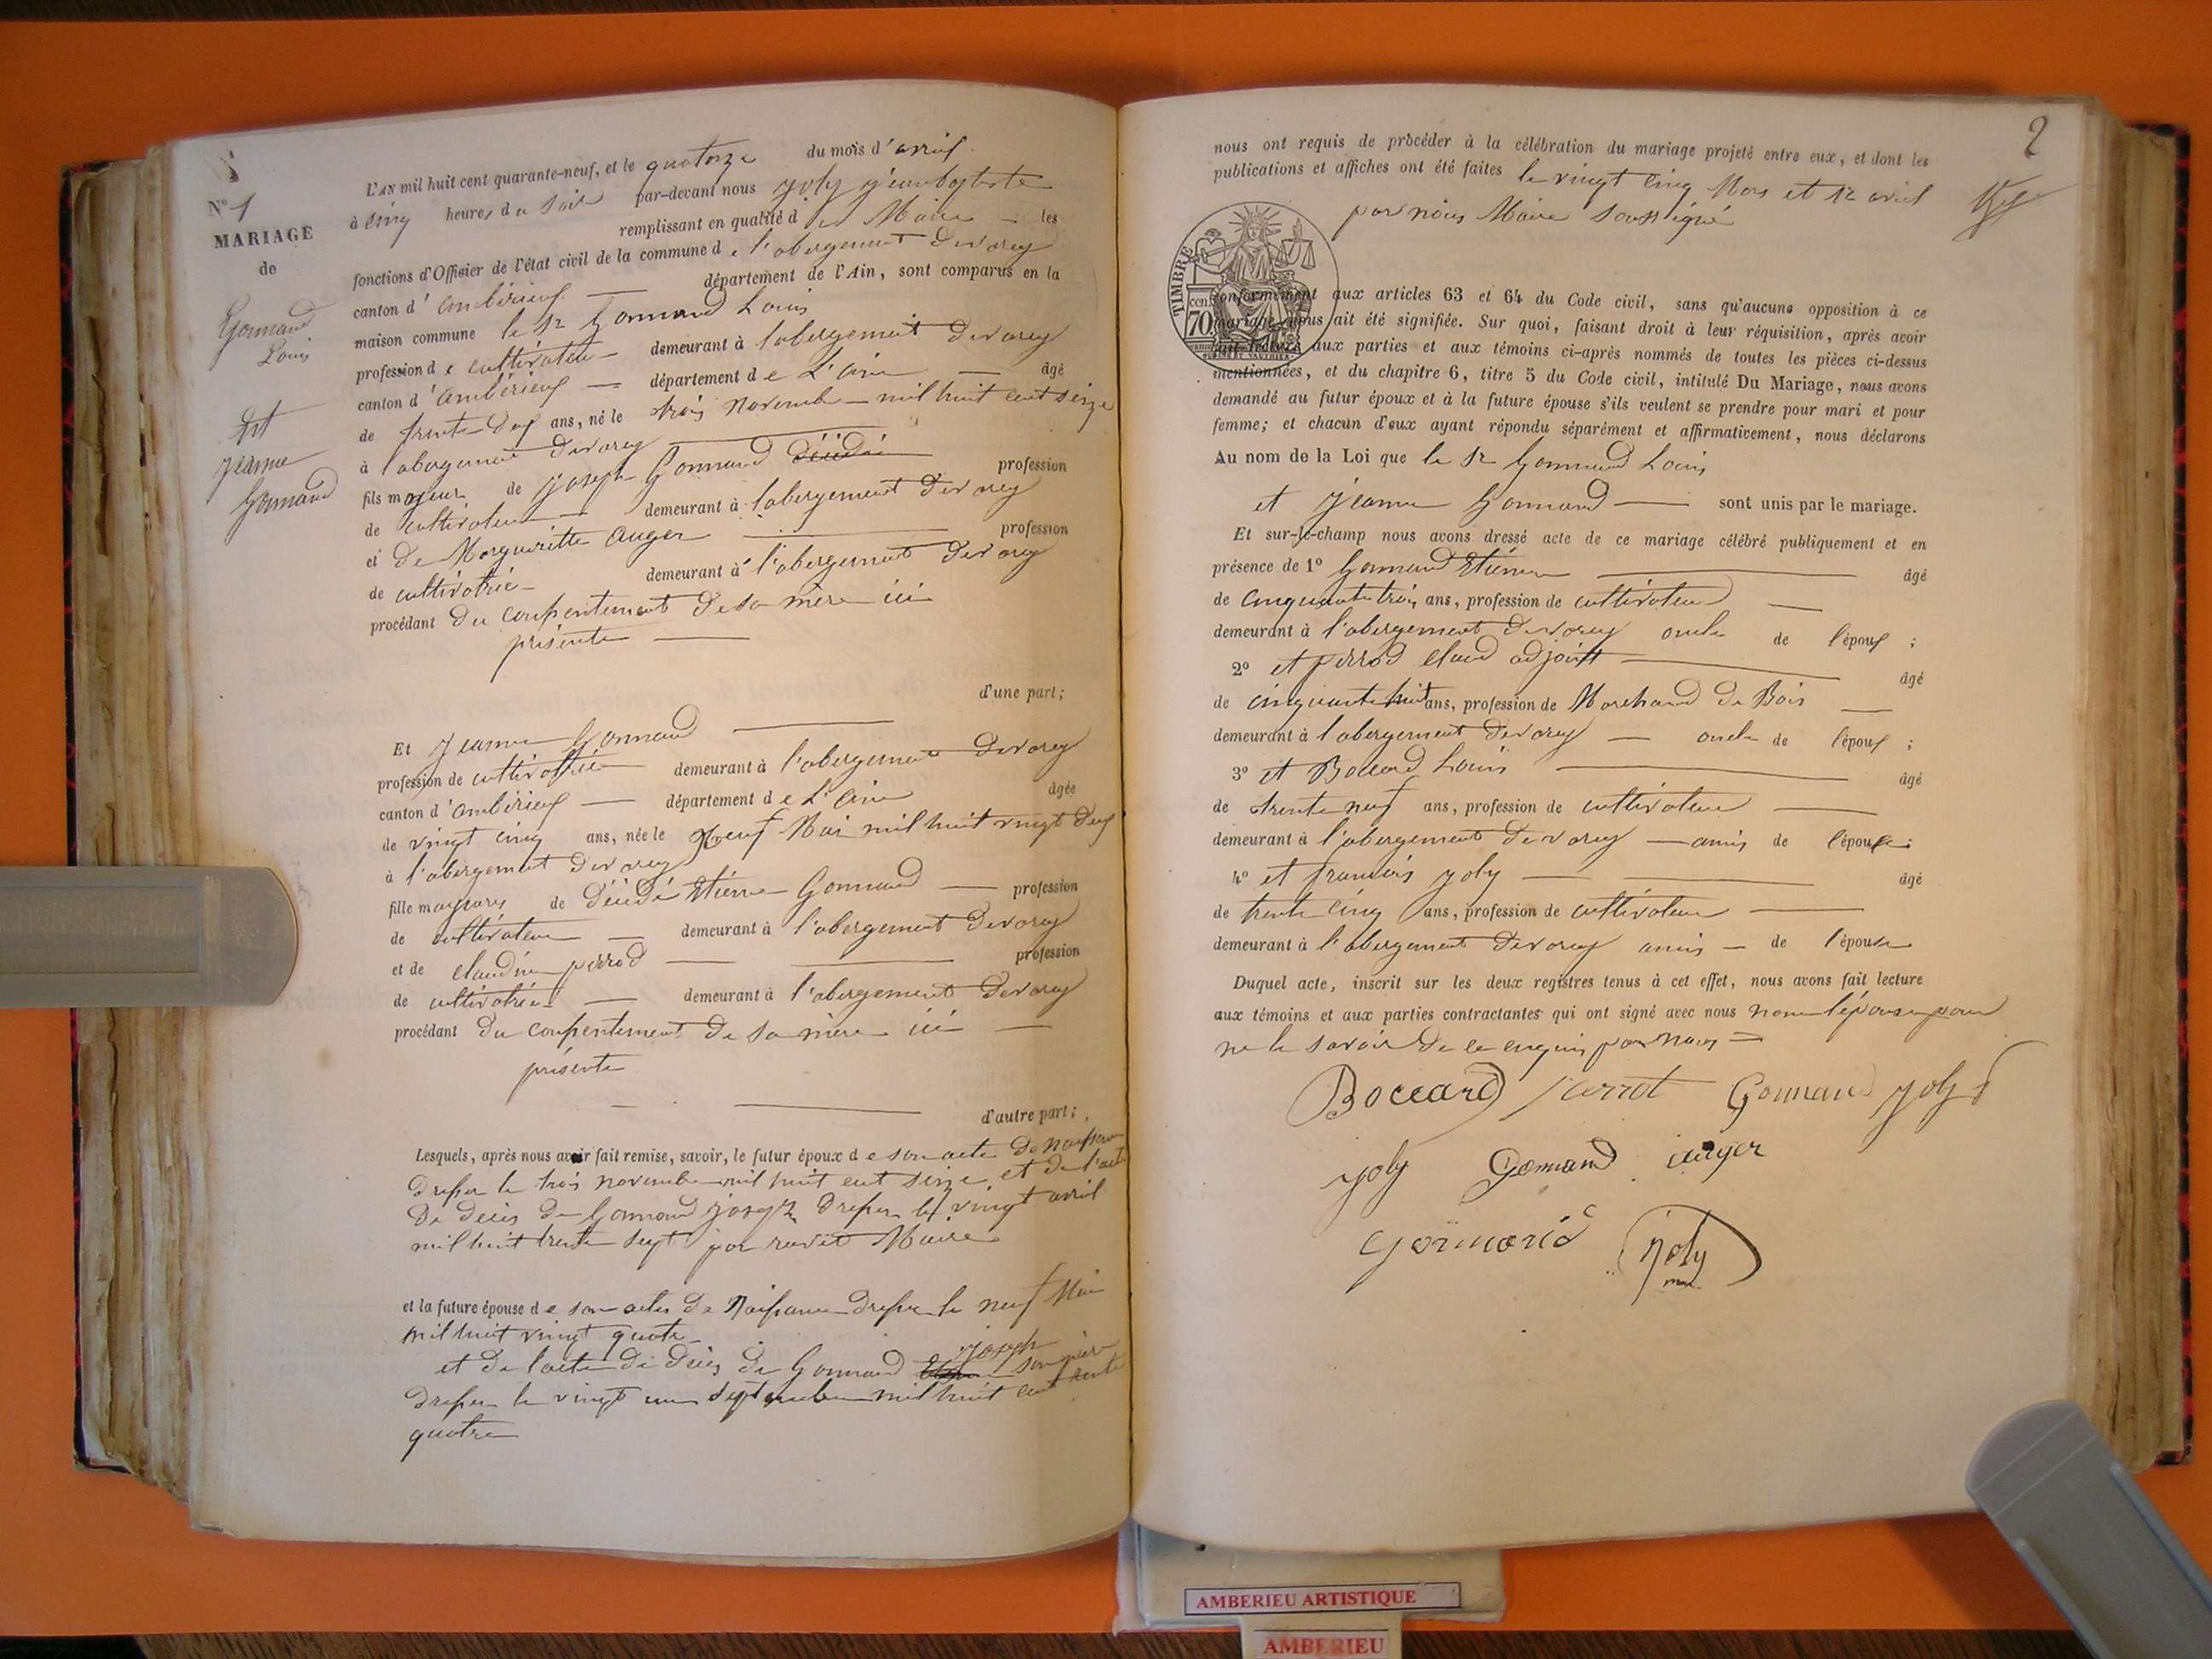 N° 1
MARIAGE
de
Gonnand
Louis
Et
Jeanne
Gonnand
L'AN mil huit cent quarante-neuf, et le quatorze du mois d'avril
à cinq heures du soir par-devant nous Joly jeanbaptiste
remplissant en qualité de Maire les
fonctions d'Officier de l'état civil de la commune de l'abergement devarey
canton d'ambérieux département de l'Ain, sont comparus en la
maison commune le sr Gonnand Louis
profession de cultivateur demeurant à l'abergement devarey
canton d'ambérieux département de L'ain âgé
de trente-deux ans, né le trois novembre mil huit cent seize
à l'abergement devarey
fils majeur de joseph Gonnand décédé profession
de cultivateur demeurant à l'abergement devarey
et de Margueritte Auger profession
de cultivatrice demeurant à l'abergement devarey
procédant du consentement de sa mère ici
présente
d'une part;
Et Jeanne Gonnand
profession de cultivatrice demeurant à l'abergement devarey
canton d'ambérieux département de L'ain âgée
de vingt cinq ans, née le neuf Mai mil huit vingt deux
à l'abergement devarey
fille majeures de décédé Etienne Gonnand profession
de cultivateur demeurant à l'abergement devarey
et de claudine perrod profession
de cultivatrice demeurant à l'abergement devarey
procédant du consentement de sa mère ici
présente
d'autre part;
Lesquels, après nous avoir fait remise, savoir, le futur époux de son acte de naissance
dresser le trois novembre mil huit cent seize et de l'acte
de décès de Gonnand joseph dresser le vingt avril
mil huit trente sept par ravet Maire
et la future épouse de son actes de Naissance dresser le neuf Mai
mil huit vingt quatre
joseph
et de l'acte de décès de Gonnand son père
dresser le vingt un septembre mil huit cent trente
quatre
2
nous ont requis de procéder à la célébration du mariage projeté entre eux, et dont les
publications et affiches ont été faites le vingt cinq Mars et 1er avril
par nous Maire soussigné
TIMBRE
70 cen.
conformément aux articles 63 et 64 du Code civil, sans qu'aucune opposition à ce
mariage nous ait été signifiée. Sur quoi, faisant droit à leur réquisition, après avoir
fait lecture aux parties et aux témoins ci-après nommés de toutes les pièces ci-dessus
mentionnées, et du chapitre 6, titre 5 du Code civil, intitulé Du Mariage, nous avons
demandé au futur époux et à la future épouse s'ils veulent se prendre pour mari et pour
femme; et chacun d'eux ayant répondu séparément et affirmativement, nous déclarons
Au nom de la Loi que le sr Gonnand Louis
et Jeanne Gonnand sont unis par le mariage.
Et sur-le-champ nous avons dressé acte de ce mariage célébré publiquement et en
présence de 1° Gonnand Etienne âgé
de cinquante trois ans, profession de cultivateur
demeurant à l'abergement devarey oncle de l'époux;
2° et perrod claud adjoint âgé
de cinquante huit ans, profession de Marchand de Bois
demeurant à l'abergement devarey oncle de l'époux;
3° et Boccard Louis âgé
de trente neuf ans, profession de cultivateur
demeurant à l'abergement devarey amis de l'épouse;
4° et francois joly âgé
de trente cinq ans, profession de cultivateur
demeurant à l'abergement devarey amis de l'épouse
Duquel acte, inscrit sur les deux registres tenus à cet effet, nous avons fait lecture
aux témoins et aux parties contractantes qui ont signé avec nous non l'épouse pour
ne le savoir de ce enquis par nous
Boccard perrot Gonnand joly
joly Gonnand auger
Gonnand Joly
AMBERIEU ARTISTIQUE
AMBERIEU